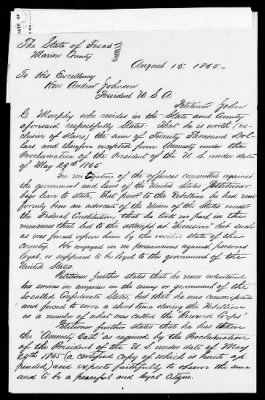 The State of Texas
Marion County
August 15. 1865.
To His Excellency
Hon Andrew Johnson
President U.S.A.
Petitioner John
C Murphy who resides in the State and County
aforesaid respectfully States: That he is worth (ex-
clusive of slaves) the sum of Twenty Thousand Dol-
lars and therefore excepted from Amnesty under the
Proclamation of the President of the U.S. under date
of May 29th 1865.
In of the offences committed against
the government and laws of the United States Petitioner
begs leave to state, that prior to the Rebellion he had been
and was an advocate of the Union of the States under
the Federal Constitution; that he took no part in the
measures that led to the attempted Secession but such
as was forced upon him by the revolted state of the
country. He engaged in no persecutions against persons
loyal, or supposed to be loyal to the government of the
United States.
Petitioner further states that he never volunteered
his services in anywise in the army or government of the
so called Confederate States, but that he was conscripted
and forced to serve a short time during the Rebellion
as a member of what was called the "Reserve Corps"
Petitioner further states that he has taken
the Amnesty Oath as required by the Proclamation
of the President of the U.S. under date of May
29th 1865 (a certified copy of which is hereto ap-
pended) and expects faithfully to observe the same
and to be a peaceful and loyal Citizen.